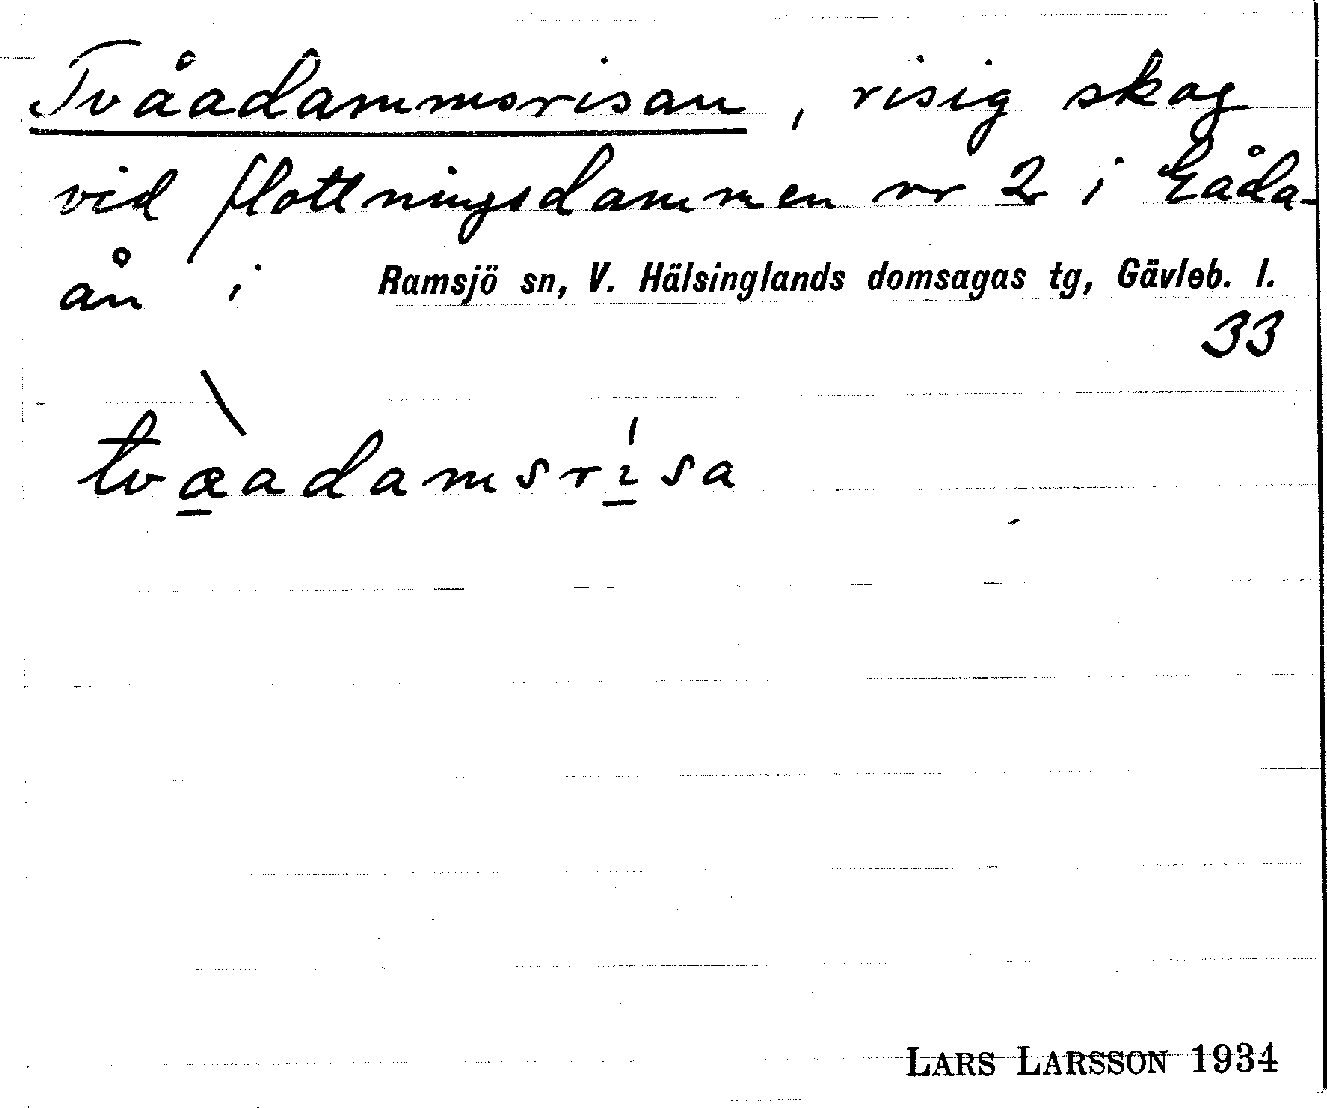 Tvåadammsrisan, risig skog
vid flottningsdammen nr 2 i Gåda-
ån i Ramsjö sn, V. Hälsinglands domsagas tg, Gävleb. l.
33
tvàadamsrísa
LARS LARSSON 1934